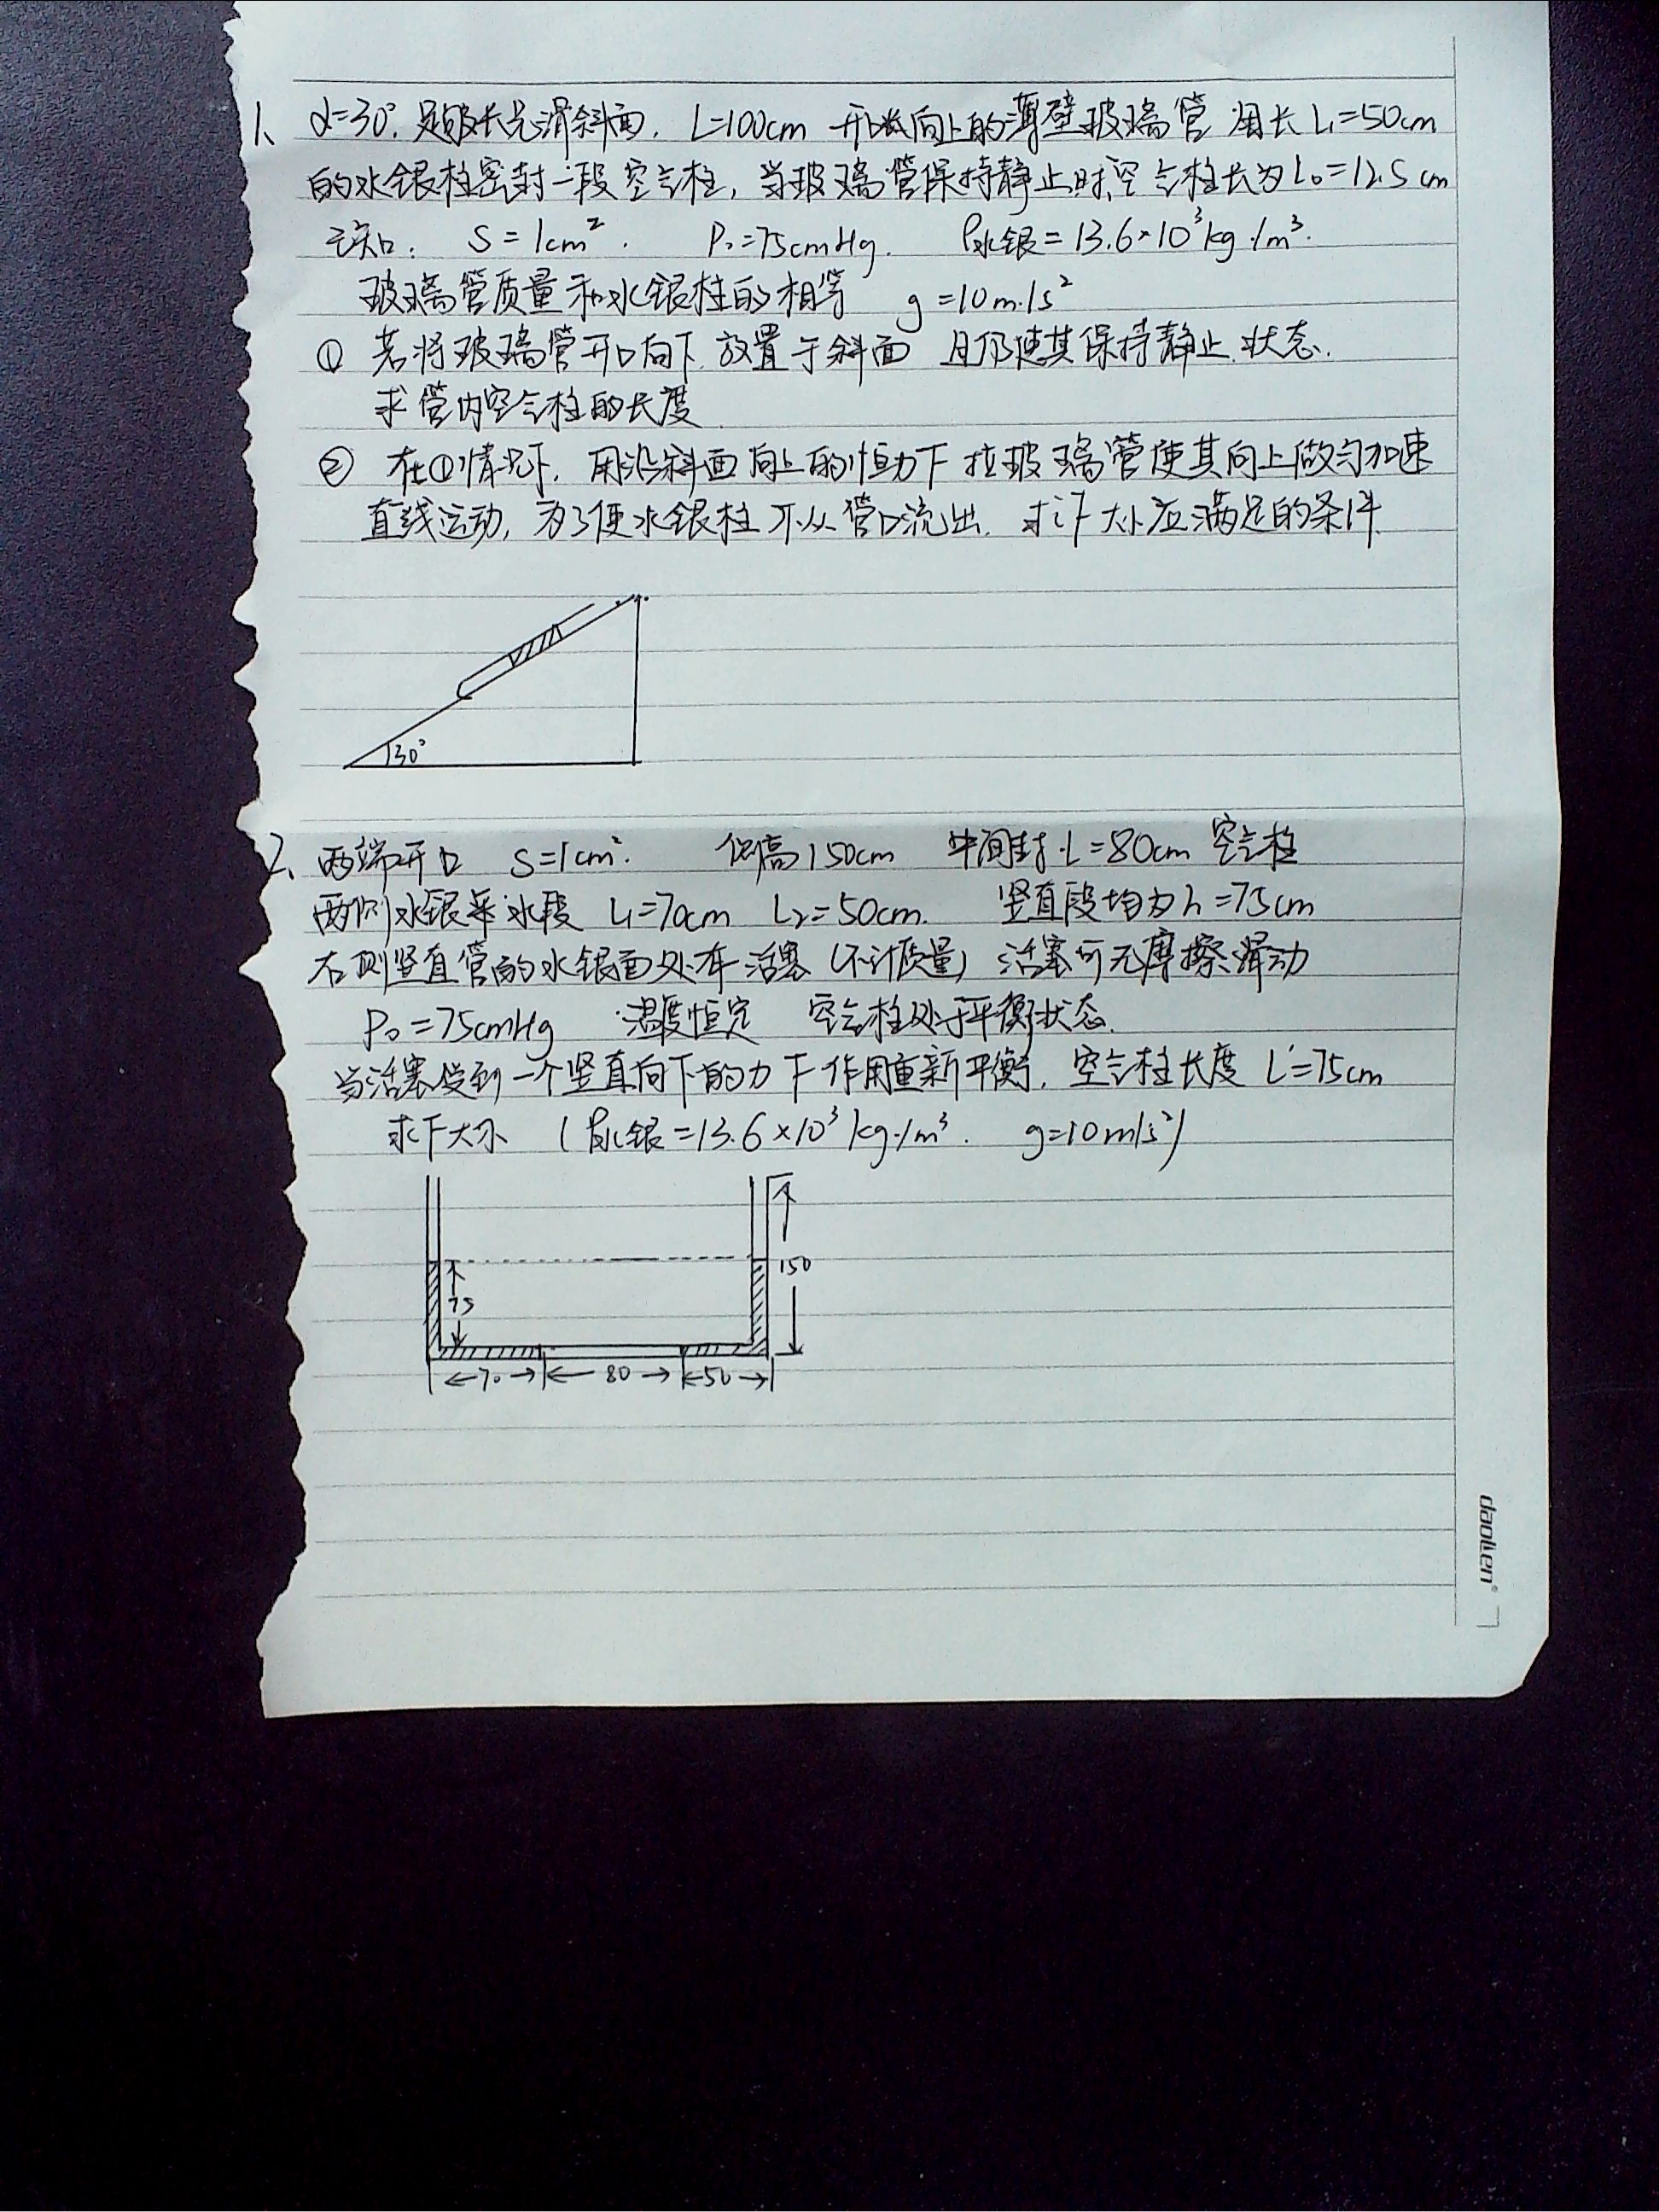 1、 α=30°. 足够长光滑斜面. L=100cm 开口向上的薄壁玻璃管 用长L₁=50cm
的水银柱密封一段空气柱, 当玻璃管保持静止时,空气柱长为L₀=12.5cm
已知: S=1cm². P₀=75cmHg. ρ水银=13.6×10³kg/m³.
玻璃管质量和水银柱的相等 g=10m/s²
① 若将玻璃管开口向下.放置于斜面 且仍使其保持静止状态.
求管内空气柱的长度
② 在①情况下. 用沿斜面向上的恒力F拉玻璃管使其向上做匀加速
直线运动, 为了使水银柱不从管口流出. 求F大小应满足的条件.
30°
2、 两端开口 S=1cm². 但高150cm 中间封L=80cm 空气柱
两侧水银柱水段 L₁=70cm L₂=50cm. 竖直段均为h=75cm
右侧竖直管的水银面处有活塞(不计质量) 活塞可无摩擦滑动
P₀=75cmHg 温度恒定 空气柱处于平衡状态.
当活塞受到一个竖直向下的力F作用重新平衡. 空气柱长度L'=75cm
求F大小 (ρ水银=13.6×10³kg/m³. g=10m/s²)
150
75
70 80 50
daolien®